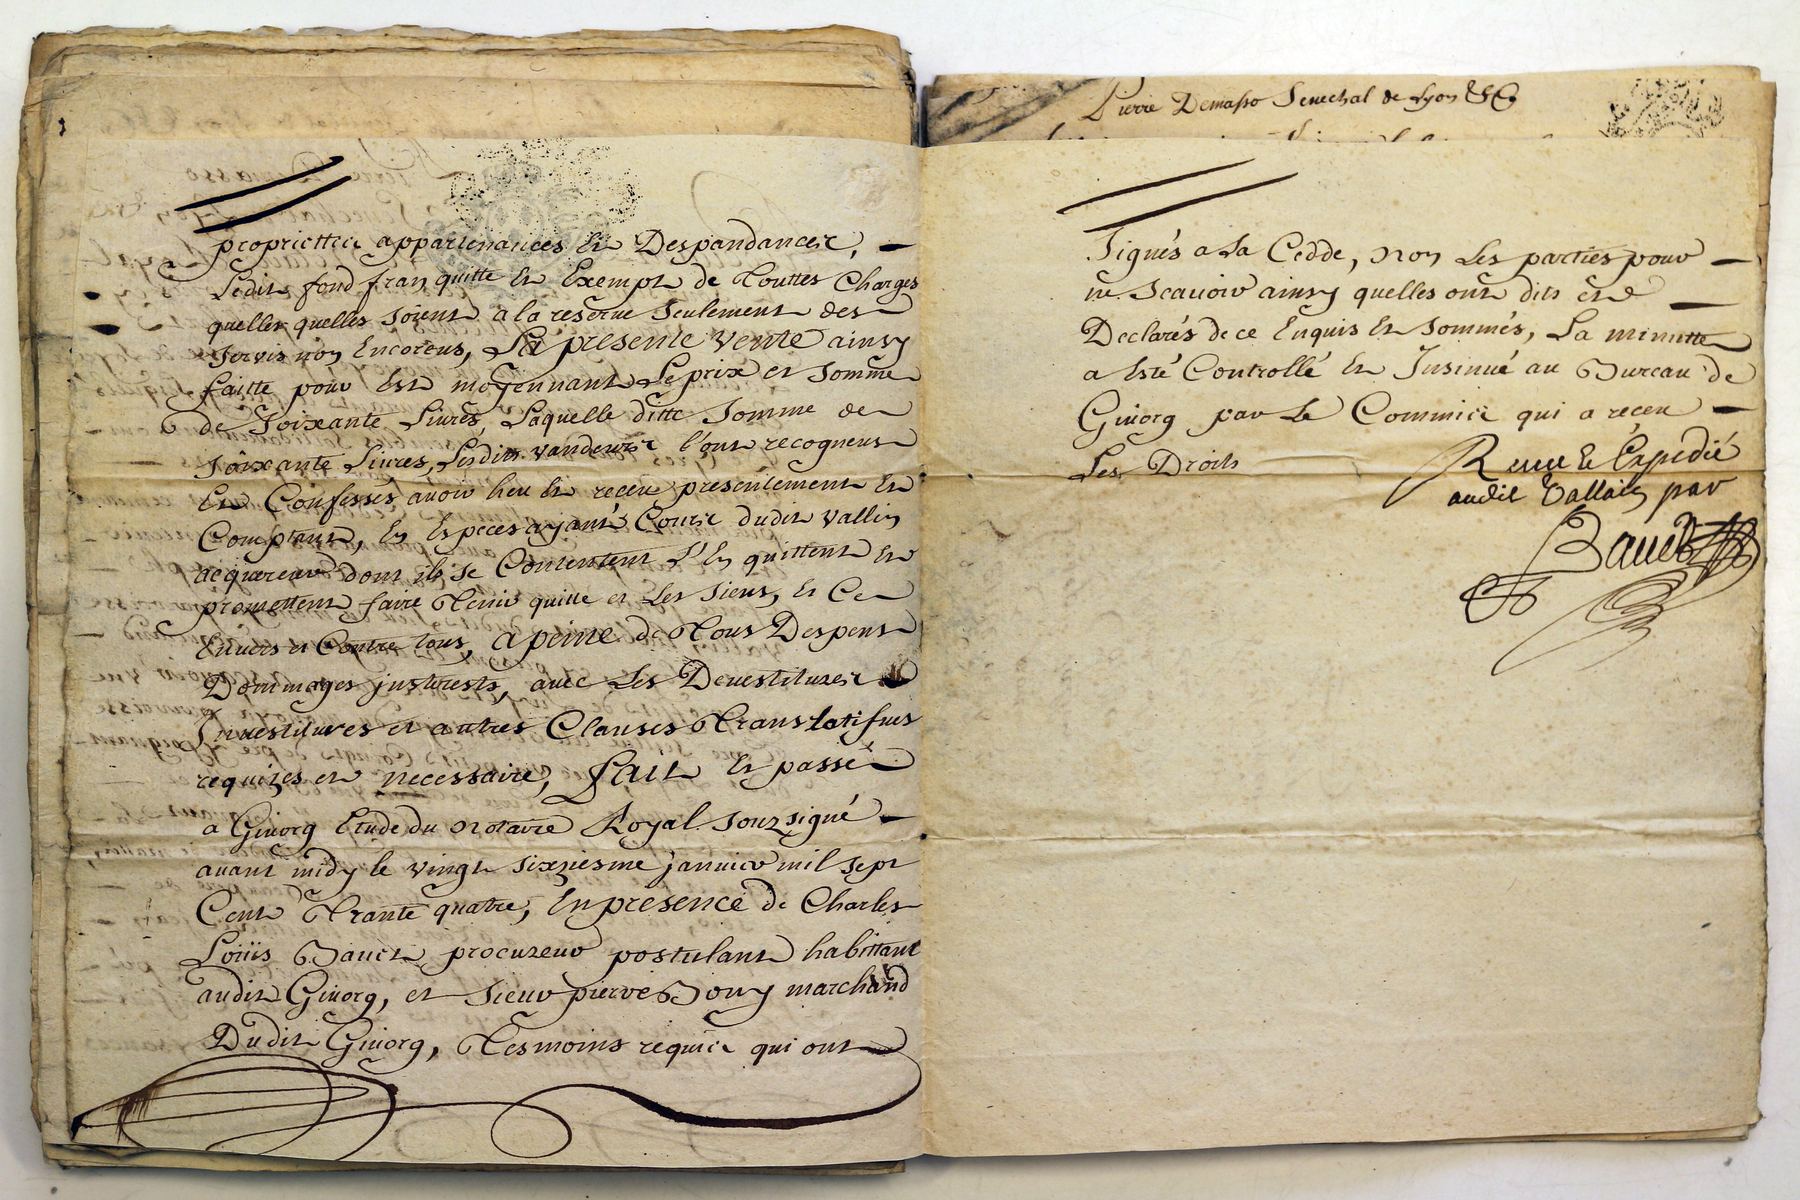 proprietties appartenances et Despandances,
Ledit fond fran quitte et Exempt de Touttes Charges
quelles quelles soient a la reserve seulement des
servis non Encoreus, La presente vente ainsy
faitte pour Est moyennant Le prix et somme
de soixante Livres, Laquelle ditte somme de
soixante Livres, Lesdits vandeurs l'ont recogneus
Et Confesses avoir heu et receu presentement Et
Comptant, En Especes ayant Cours dudit vallin
acquereur dont ils se Contentent L'En quittent et
promettent faire Tenir quitte et Les siens, Et Ce
Envers et Contre tous, a peine de Tous Despens
Dommages jnterests, avec Les Devestitures
Jnvestitures et autres Clauses Translatifves
requizes et necessaire, fait Et passé
a Givorg Etude du Notaire Royal souzsigné
avant midy le vingt sixziesme janvier mil sept
Cent Trante quatre, En presence de Charles
Loüis Bauet procureur postulant habittant
audit Givorg, et sieur pierre Bony marchand
Dudit Givorg, Tesmoins requis qui ont
Pierre Demasso Senechal de Lyon &C
signés a La Cedde, non Les parties pour
ne sçavoir ainsy quelles ont dits et
Declarés de ce Enquis Et sommés, La minutte
a Esté Controllé Et Jnsinué au Bureau de
Givorg par Le Commis qui a receu
Les Droits
Expedié
audit Vallin par
Bauet